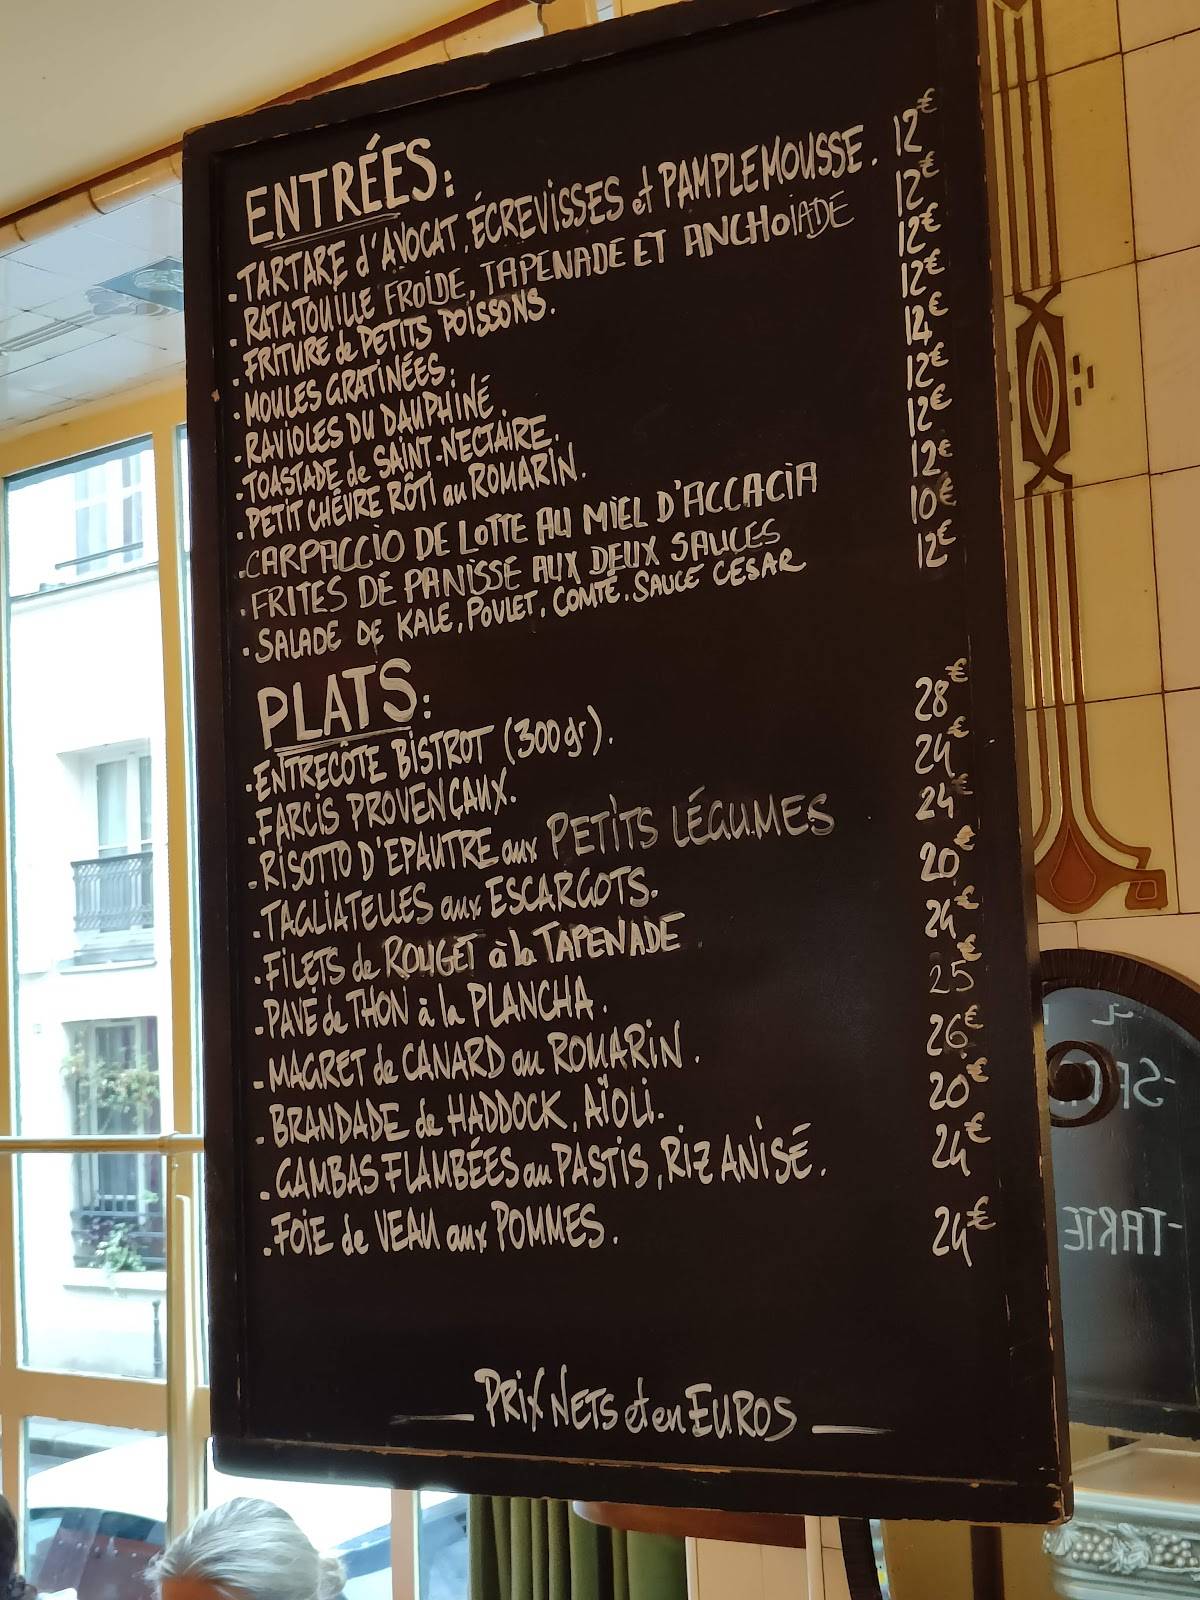 ENTRÉES:
. TARTARE d'AVOCAT, ÉCREVISSES et PAMPLEMOUSSE. 12€
. RATATOUILLE FROIDE, TAPENADE ET ANCHOIADE 12€
. FRITURE de PETITS POISSONS. 12€
. MOULES GRATINÉES. 12€
. RAVIOLES DU DAUPHINÉ 14€
. TOASTADE de SAINT-NECTAIRE. 12€
. PETIT CHÈVRE RÔTI au ROMARIN. 12€
. CARPACCIO DE LOTTE AU MIEL D'ACCACIA 12€
. FRITES DE PANISSE AUX DEUX SAUCES 10€
. SALADE DE KALE, POULET, COMTÉ, SAUCE CÉSAR 12€
PLATS:
. ENTRECÔTE BISTROT (300gr). 28€
. FARCIS PROVENÇAUX. 24€
. RISOTTO D'EPAUTRE aux PETITS LÉGUMES 24€
. TAGLIATELLES aux ESCARGOTS. 20€
. FILETS de ROUGET à la TAPENADE 24€
. PAVÉ de THON à la PLANCHA. 25€
. MAGRET de CANARD au ROMARIN. 26€
. BRANDADE de HADDOCK, AÏOLI. 20€
. GAMBAS FLAMBÉES au PASTIS, RIZ ANISÉ. 24€
. FOIE de VEAU aux POMMES. 24€
PRIX NETS et en EUROS
-TARTE